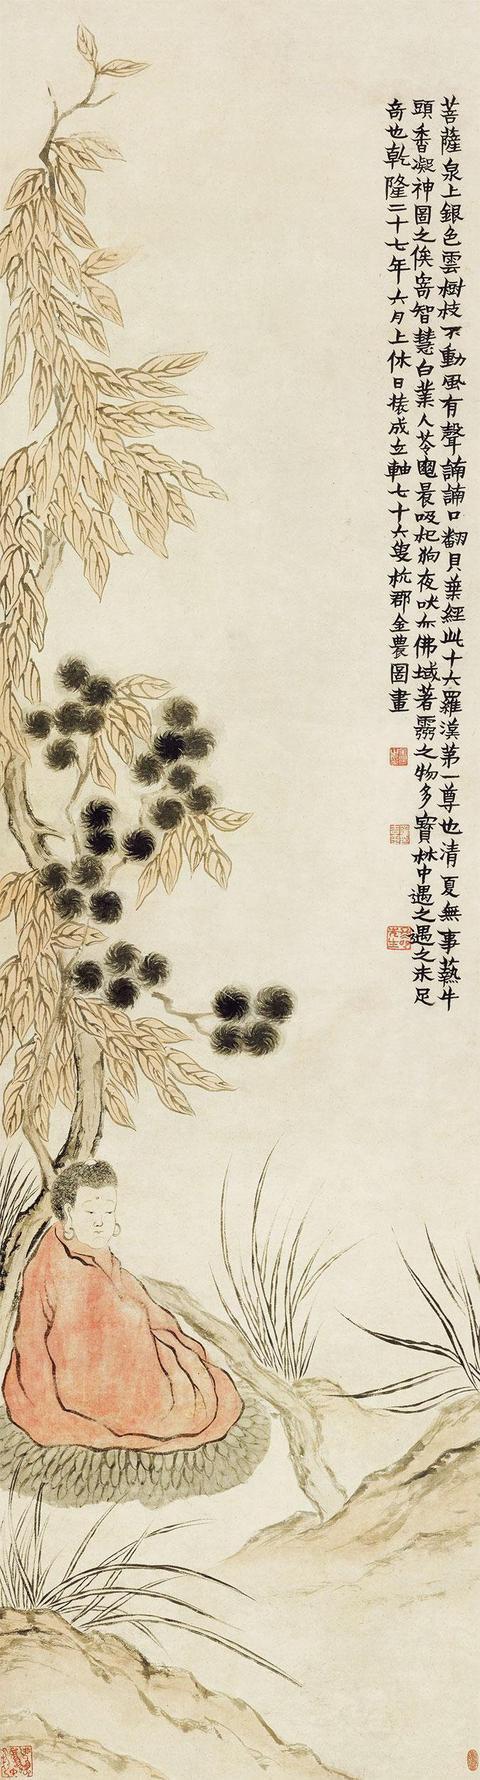 菩薩泉上銀色雲樹枝不動風有聲諵諵口翻貝葉經此十六羅漢第一尊也清夏無事爇牛
頭香凝神圖之俟奇智慧白業人苓龜最吸杞狗夜吠亦佛域著靈之物多寶林中遇之遇之未足
奇也乾隆二十七年六月上休日裝成立軸七十六叟杭郡金農圖畫